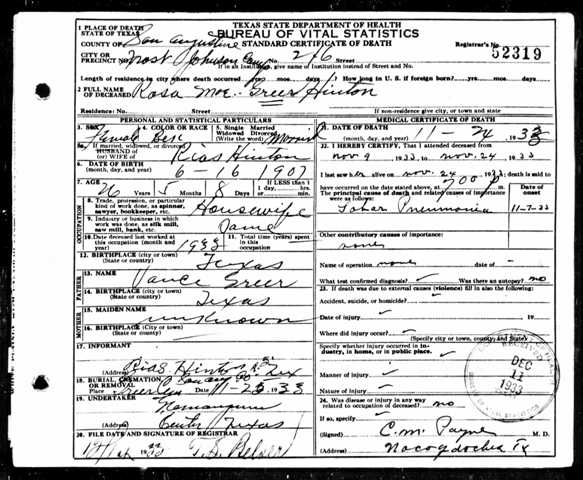 TEXAS STATE DEPARTMENT OF HEALTH
BUREAU OF VITAL STATISTICS
STANDARD CERTIFICATE OF DEATH
1 PLACE OF DEATH
STATE OF TEXAS
COUNTY OF San Augustine
Registrar's No.
52319
CITY OR
PRECINCT NO. Street
Length of residence in city where death occurred yrs. mos. days. How long in U. S. if foreign born? yrs. mos. days
2 FULL NAME
OF DECEASED Rosa Mae Greer Hinton
Residence: No. Street If non-residence give city, or town, and state
PERSONAL AND STATISTICAL PARTICULARS
3. SEX Female
4. COLOR OR RACE
5. Single Married Widowed Divorced (Write the word) Married
5a. If married, widowed, or divorced
HUSBAND OF
(or) WIFE OF Hinton
6. DATE OF BIRTH
(month, day, and year) 6-16 1907
7. AGE 26 Years 5 Months 8 Days
IF LESS than 1
day, hrs.
min.
OCCUPATION
8. Trade, profession, or particular kind of work done, as spinner, sawyer, bookkeeper, etc. Housewife
9. Industry or business in which work was done, as silk mill, saw mill, bank, etc. Same
10. Date deceased last worked at this occupation (month and year) 1933
11. Total time (years) spent in this occupation
12. BIRTHPLACE (City or town)
(State or country) Texas
FATHER
13. NAME
Vance Greer
14. BIRTHPLACE (City or town)
(State or country) Texas
MOTHER
15. MAIDEN NAME
unknown
16. BIRTHPLACE (City or town)
(State or country)
17. INFORMANT
Hinton
(Address) Tex
18. BURIAL, CREMATION,
OR REMOVAL
Place 11-25 1933
19. UNDERTAKER
(Address) Center Texas
20. FILE DATE AND SIGNATURE OF REGISTRAR
MEDICAL CERTIFICATE OF DEATH
21. DATE OF DEATH
(month, day, and year) 11-24, 1933
22. I HEREBY CERTIFY, That I attended deceased from
Nov 9 1933 to Nov. 24, 1933
I last saw her alive on Nov. 24 1933; death is said
to have occurred on the date stated above, at 700 P m.
The principal cause of death and related causes of importance
were as follows:
Date of onset
Lobar Pneumonia 11-7-33
Other contributory causes of importance:
none
Name of operation none date of -
What test confirmed diagnosis? Was there an autopsy? no
23. If death was due to external causes (violence) fill in also the following:
Accident, suicide, or homicide?
Date of injury 19
Where did injury occur?
(Specify city or town, county, and State)
Specify whether injury occurred in industry, in home, or in public place.
Manner of injury
Nature of injury
24. Was disease or injury in any way
related to occupation of deceased? no
If so, specify
(Signed) C. M. Payne M. D.
(Address) Nacogdoches Tx
RECEIVED
DEC
11
1933